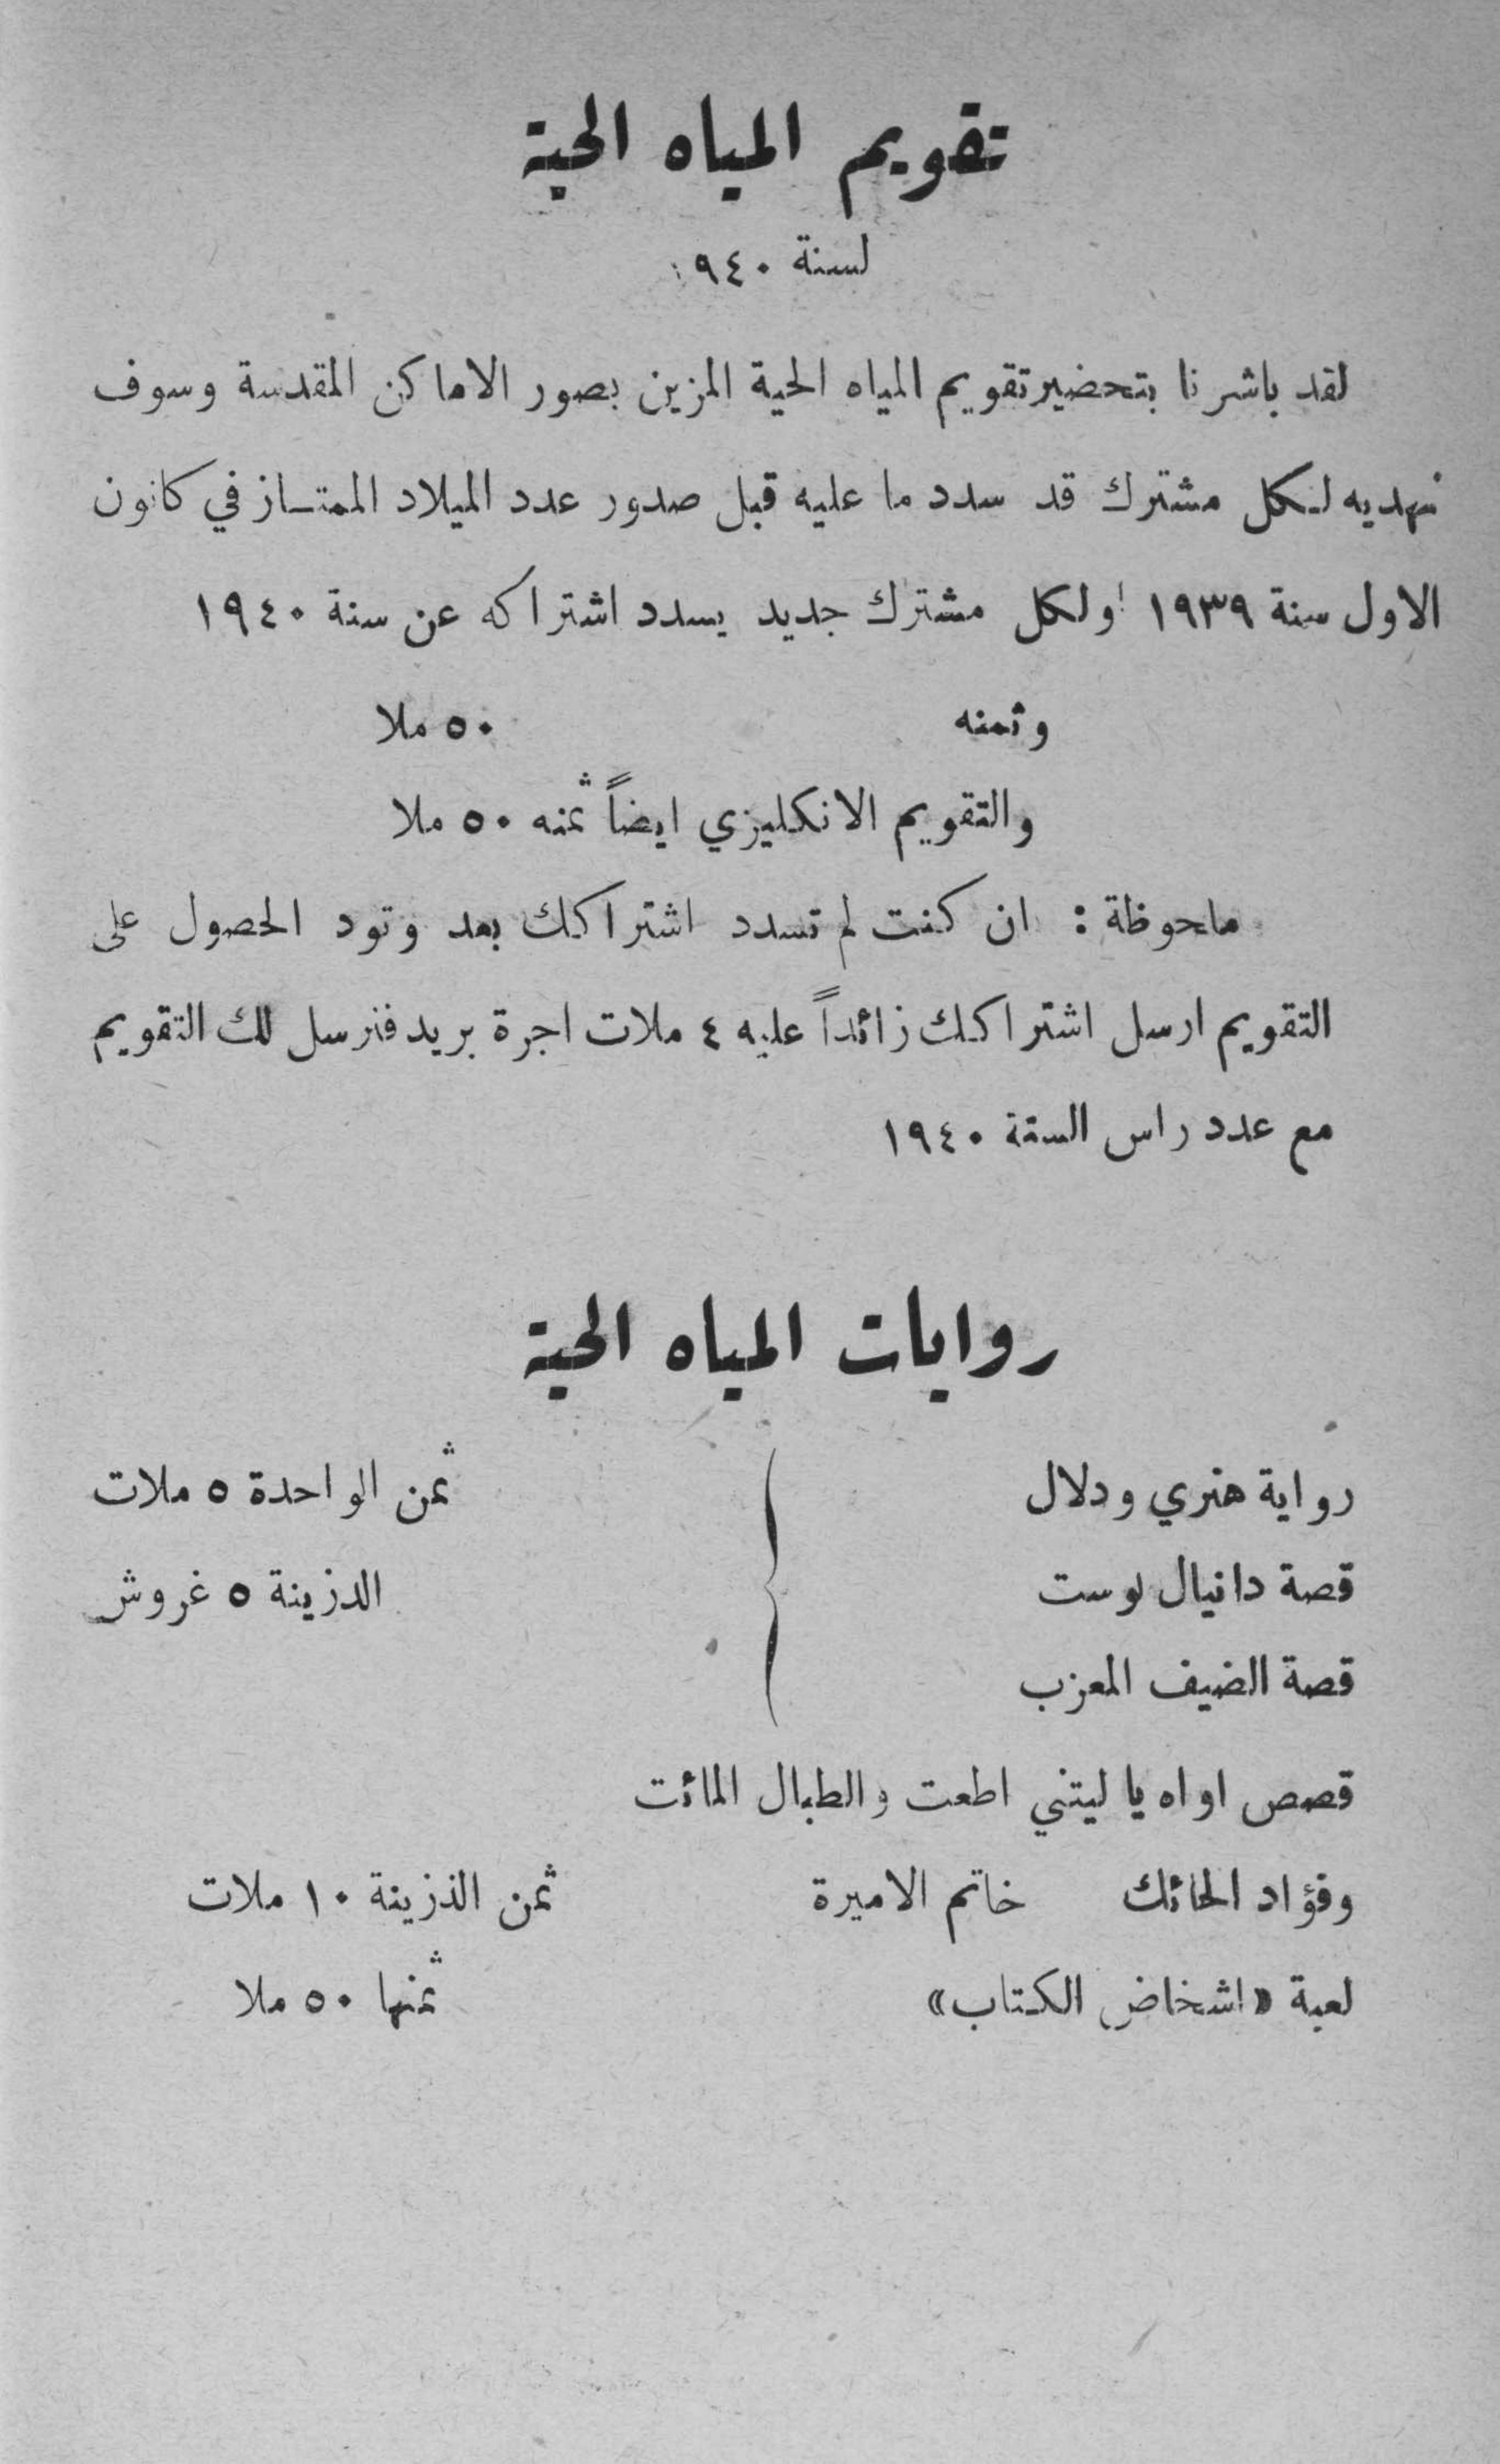 تقويم المياه الحية
لسنة ١٩٤٠
لقد باشرنا بتحضير تقويم المياه الحية المزين بصور الاماكن المقدسة وسوف
نهديه لكل مشترك قد سدد ما عليه قبل صدور عدد الميلاد الممتاز في كانون
الاول سنة ١٩٣٩ ولكل مشترك جديد يسدد اشتراكه عن سنة ١٩٤٠
وثمنه ٥٠ ملا
والتقويم الانكليزي ايضاً ثمنه ٥٠ ملا
ملحوظة : ان كنت لم تسدد اشتراكك بعد وتود الحصول على
التقويم ارسل اشتراكك زائداً عليه ٤ ملات اجرة بريد فنرسل لك التقويم
مع عدد راس السنة ١٩٤٠
روايات المياه الحية
رواية هنري ودلال ثمن الواحدة ٥ ملات
قصة دانيال لوست الدزينة ٥ غروش
قصة الضيف المعزب
قصص اواه يا ليتني اطعت والطبال المائت
وفؤاد الحائك خاتم الاميرة ثمن الذزينة ١٠ ملات
لعبة «اشخاض الكتاب» ثمنها ٥٠ ملا